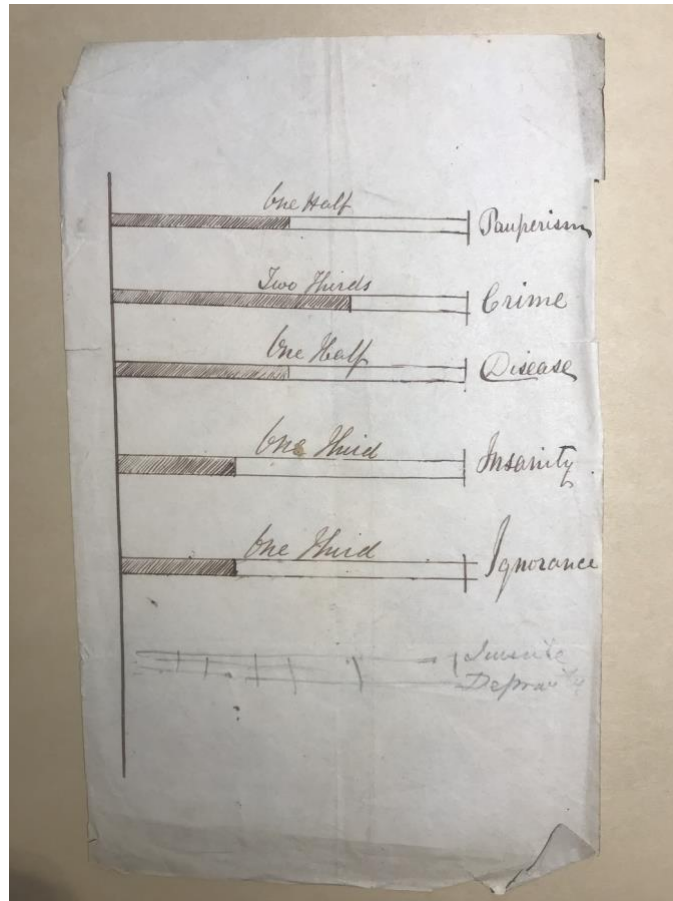 One Half
Pauperism
Two Thirds
Crime
One Half
Disease
One Third
Insanity
One Third
Ignorance
Juvenile
Depravity